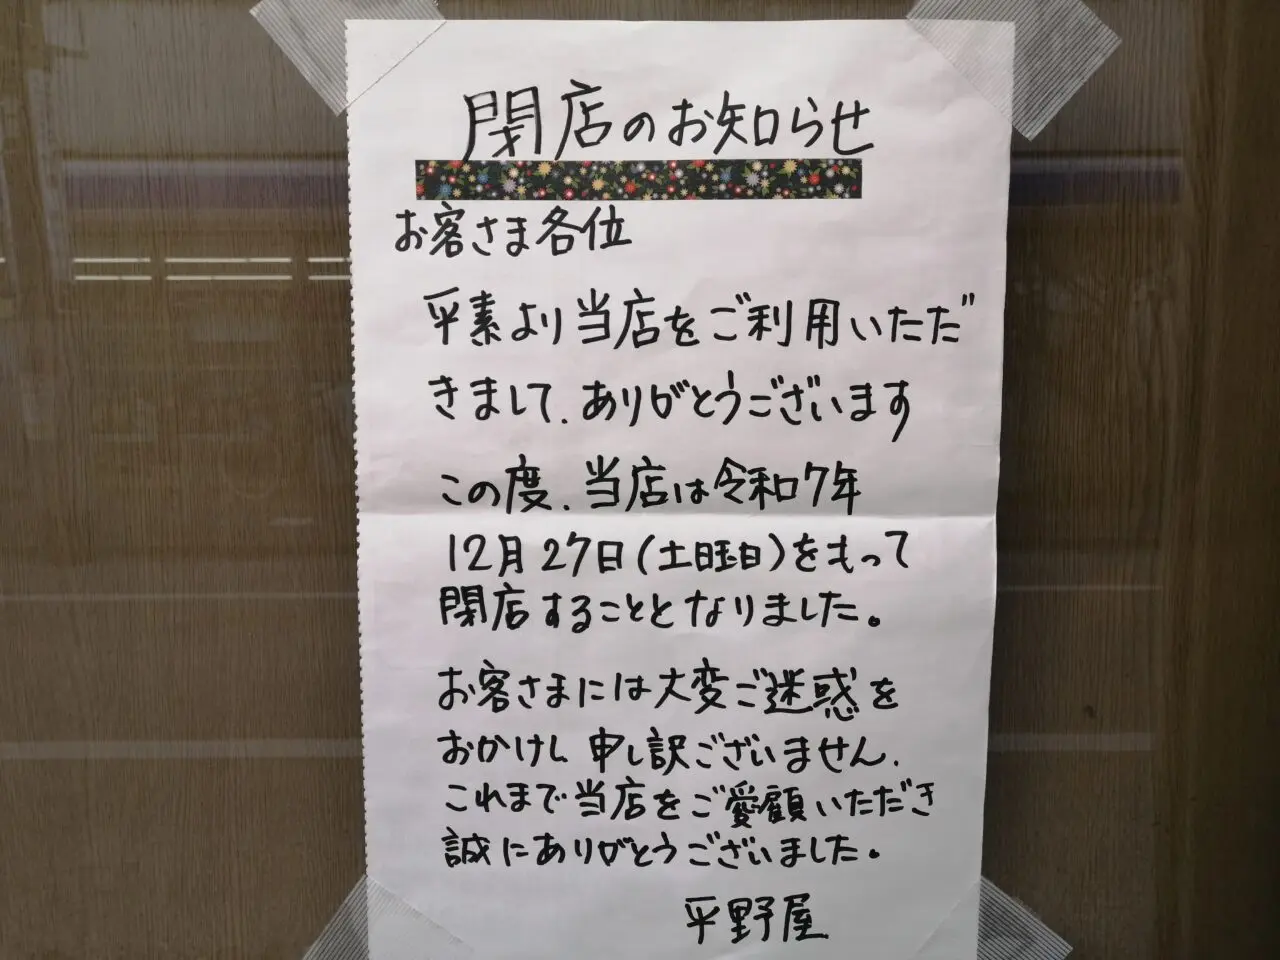 閉店のお知らせ
お客さま各位
平素より当店をご利用いただ
きまして、ありがとうございます
この度、当店は令和7年
12月27日(土曜日)をもって
閉店することとなりました。
お客さまには大変ご迷惑を
おかけし申し訳ございません、
これまで当店をご愛顧いただき
誠にありがとうございました。
平野屋